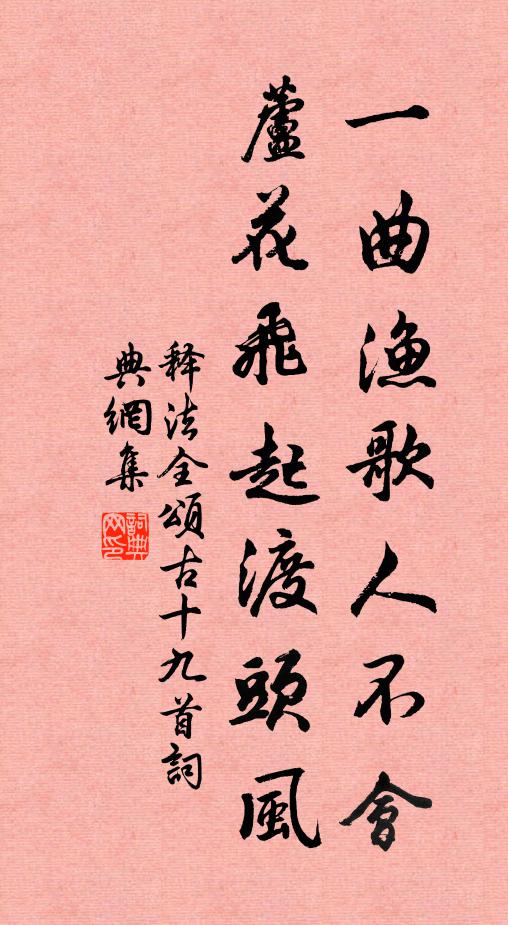 一曲渔歌人不會
蘆花飛起渡頭風
释法全頌古十九首詞
典網集
詞典網印